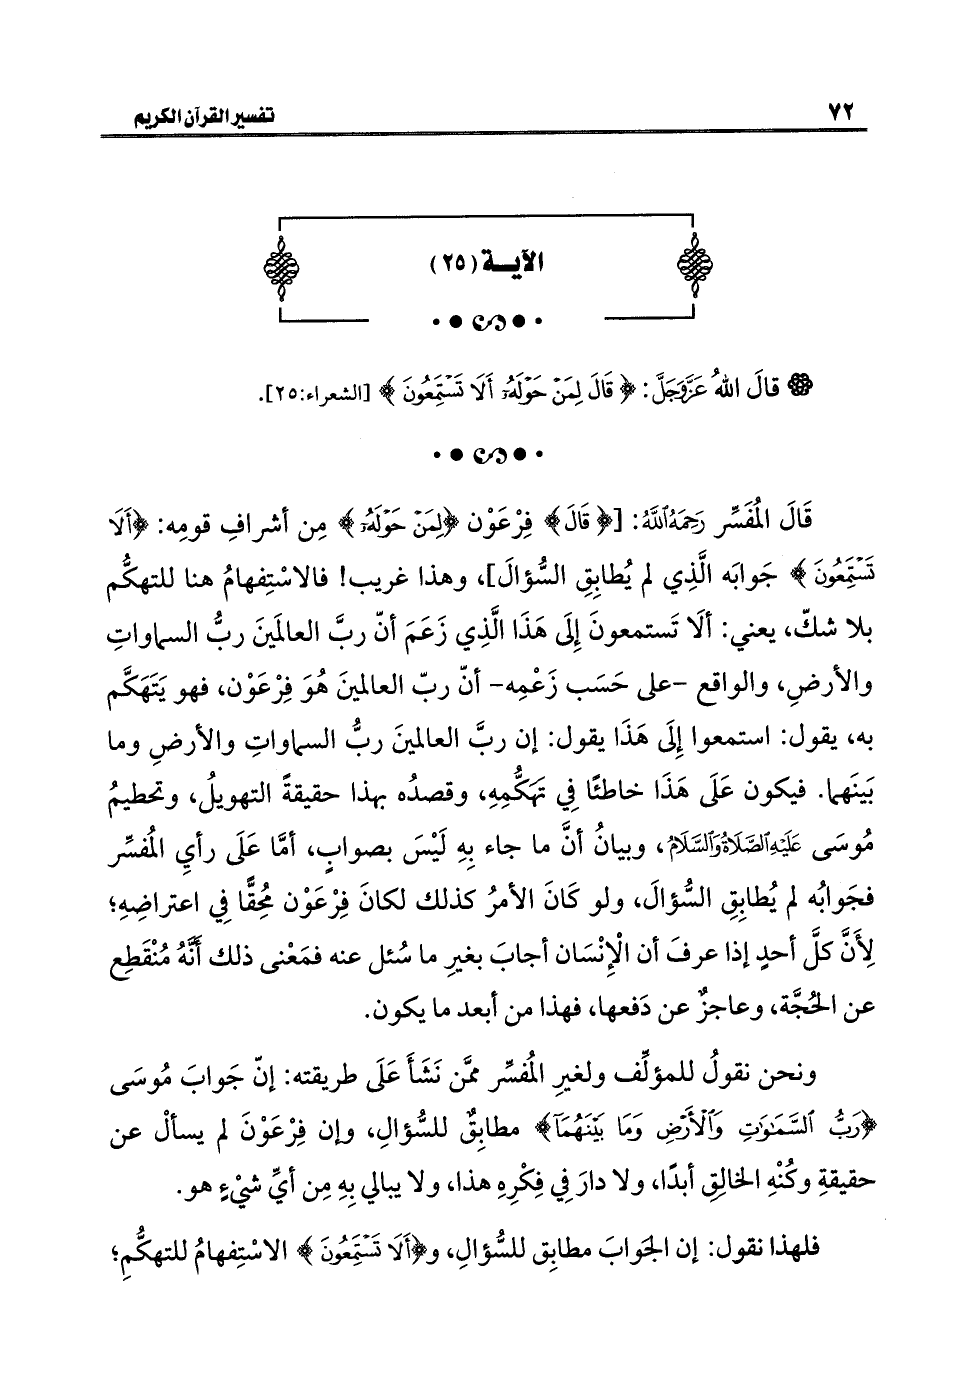 ٧٢
تفسير القرآن الكريم
الآيــة (٢٥)
قالَ اللهُ عَزَّوَجَلَّ: ﴿ قَالَ لِمَنْ حَوْلَهُۥٓ أَلَا تَسْتَمِعُونَ ﴾ [الشعراء:٢٥].
قَالَ المُفَسِّر رَحِمَهُ اللَّهُ: [﴿ قَالَ﴾ فِرْعَوْن ﴿لِمَنْ حَوْلَهُۥٓ﴾ مِن أشرافِ قومِه: ﴿أَلَا
تَسْتَمِعُونَ ﴾ جَوابَه الَّذِي لم يُطابِقِ السُّؤالَ]، وهذا غريب! فالاسْتِفهامُ هنا للتهكُّم
بلا شكّ، يعني: ألَا تَستمعونَ إِلَى هَذَا الَّذِي زَعَمَ أنّ ربَّ العالَمِينَ ربُّ السماواتِ
والأرضِ، والواقع -على حَسَب زَعْمِه- أنّ ربّ العالمينَ هُوَ فِرْعَوْن، فهو يَتَهَكَّم
به، يقول: استمعوا إِلَى هَذَا يقول: إن ربَّ العالمينَ ربُّ السماواتِ والأرضِ وما
بَينَهما. فيكون عَلَى هَذَا خاطئًا فِي تهَكُّمِهِ، وقصدُه بهذا حقيقةً التهويلُ، وتحطيمُ
مُوسَى عَلَيْهِ الصَّلَاةُ وَالسَّلَامُ، وبيانُ أنَّ ما جاء بِهِ لَيْسَ بصوابٍ، أمَّا عَلَى رأيِ المُفسِّر
فجَوابُه لم يُطابِقِ السُّؤالَ، ولو كَانَ الأمرُ كذلك لكانَ فِرْعَوْن مُحِقًّا فِي اعتراضِهِ؛
لِأَنَّ كلَّ أحدٍ إذا عرفَ أن الْإِنْسَان أجابَ بغيرِ ما سُئل عنه فمَعْنى ذلك أَنَّهُ مُنْقَطِع
عن الحُجَّة، وعاجزٌ عن دَفعها، فهذا من أبعد ما يكون.
ونحن نقولُ للمؤلِّف ولغيرِ المُفسِّر ممَّن نَشَأَ عَلَى طريقته: إنّ جَوابَ مُوسَى
﴿رَبُّ ٱلسَّمَٰوَٰتِ وَٱلْأَرْضِ وَمَا بَيْنَهُمَآ﴾ مطابِقٌ للسُّؤالِ، وإن فِرْعَوْنَ لم يسألْ عن
حقيقةِ وكُنْهِ الخالِقِ أبدًا، ولا دارَ فِي فِكْرِهِ هذا، ولا يبالي بِهِ مِن أيِّ شيْءٍ هو.
فلهذا نقول: إن الجَوابَ مطابِق للسُّؤالِ، و﴿أَلَا تَسْتَمِعُونَ ﴾ الاسْتِفهامُ للتهكُّمِ؛